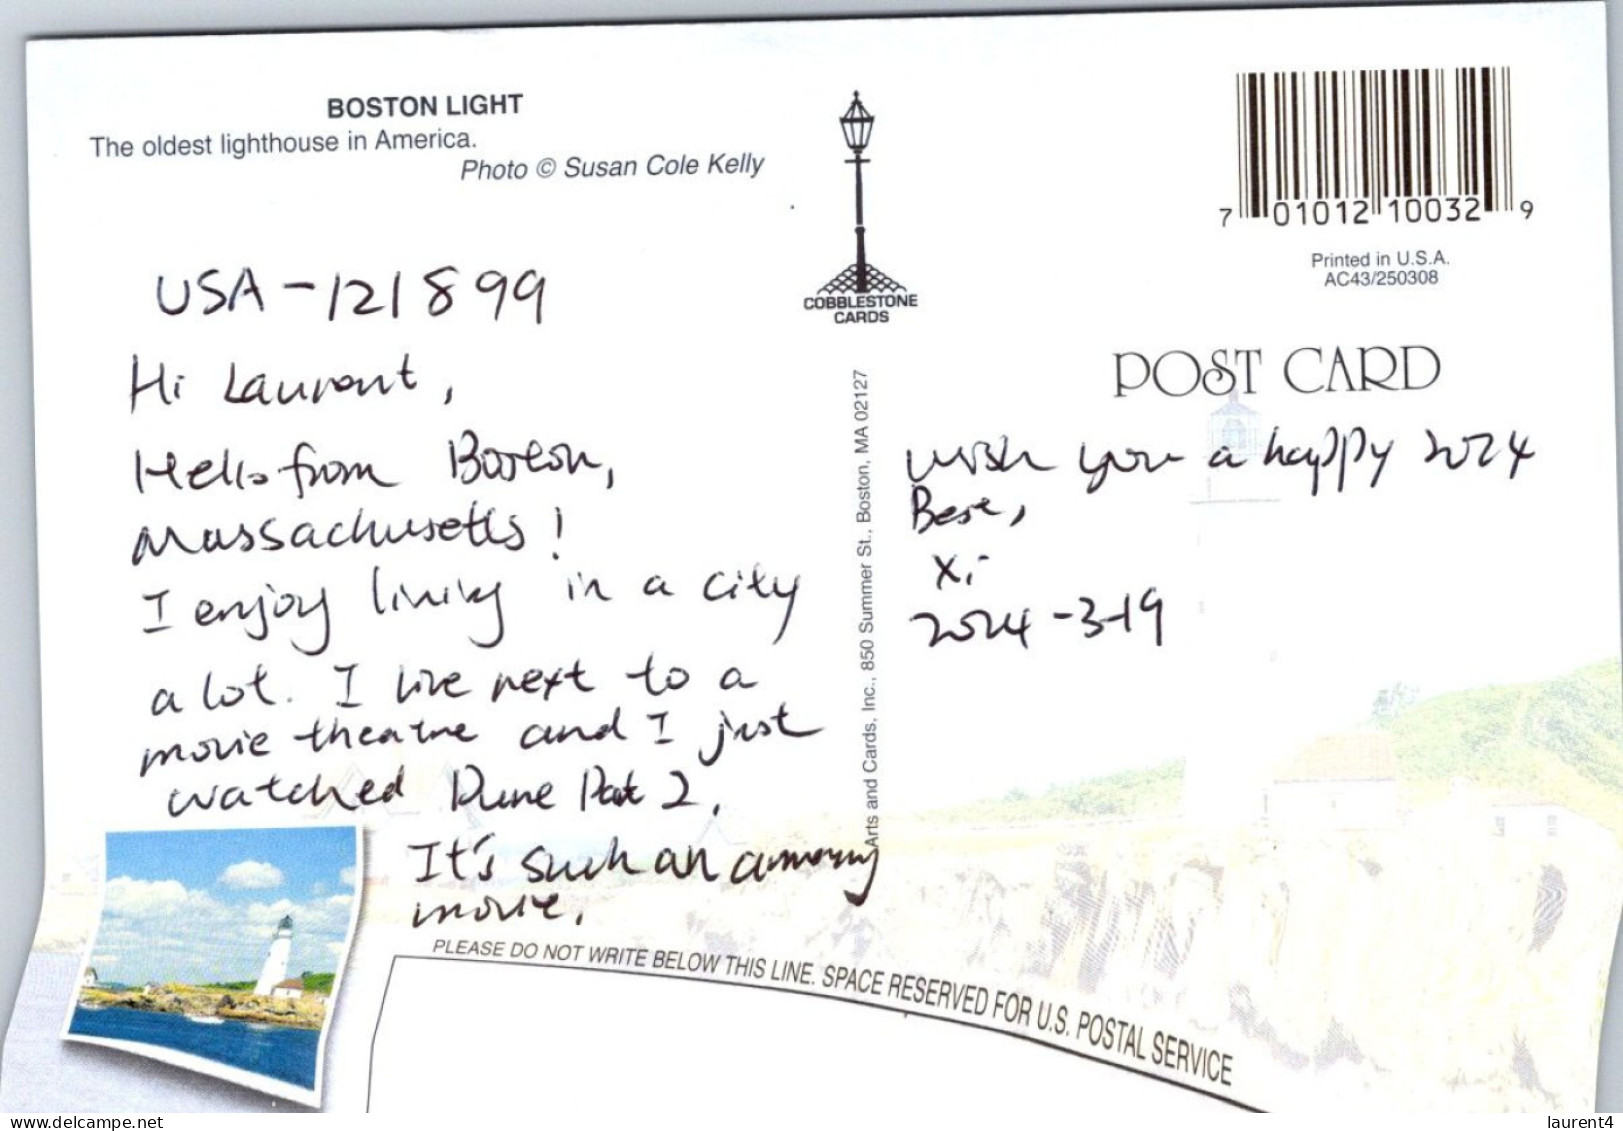 BOSTON LIGHT
The oldest lighthouse in America.
Photo © Susan Cole Kelly
COBBLESTONE
CARDS
7 01012 10032 9
Printed in U.S.A.
AC43/250308
POST CARD
Arts and Cards, Inc., 850 Summer St., Boston, MA 02127
USA-121899
Hi Laurent,
Hello from Boston,
Massachusetts!
I enjoy living in a city
a lot. I live next to a
movie theatre and I just
watched Dune Part 2.
It's such an amazing
movie.
wish you a happy 2024
Best,
Xi
2024-3-19
PLEASE DO NOT WRITE BELOW THIS LINE. SPACE RESERVED FOR U.S. POSTAL SERVICE
laurent4